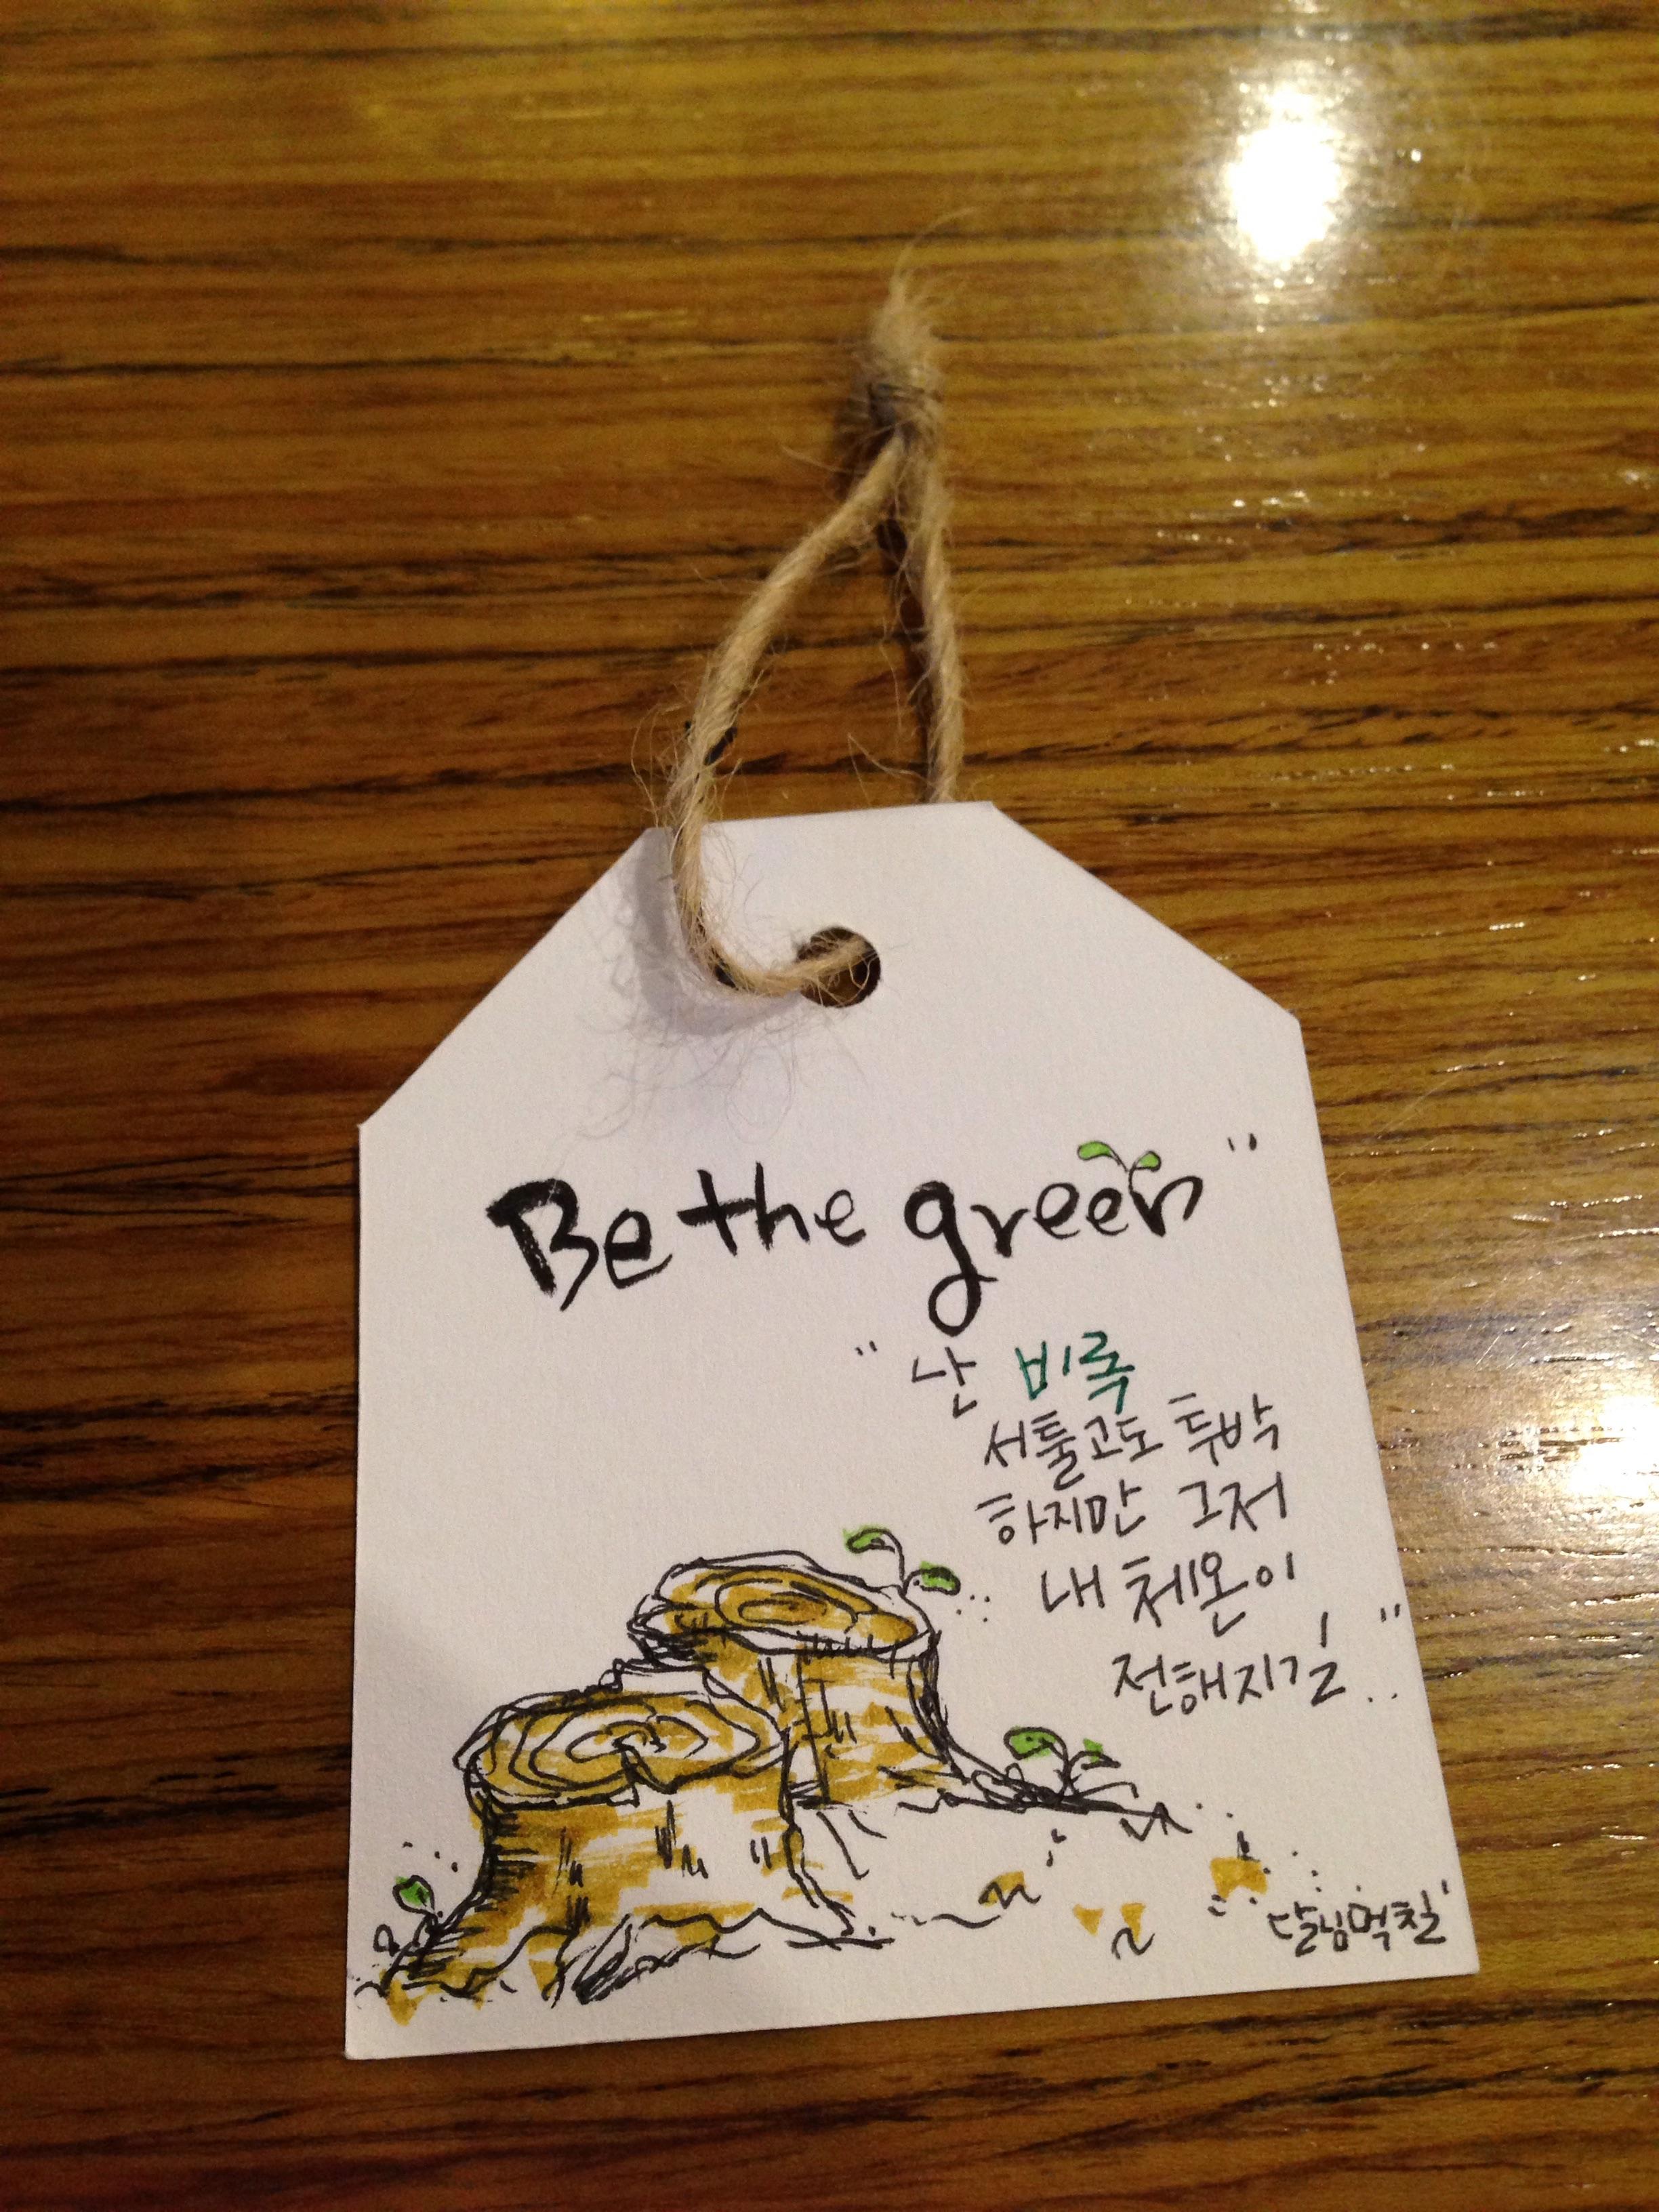 Be the green"
"난 비록
서툴고도 투박
하지만 그저
내 체온이
전해지길.."
달님먹칠'